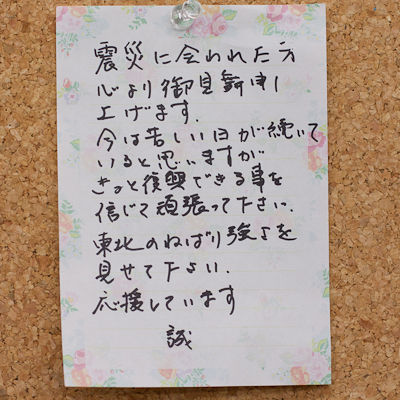 震災に会われた方
心より御見舞申し
上げます.
今は苦しい日が続いて
いると思いますが
きっと復興できる事を
信じて頑張って下さい.
東北のねばり強さを
見せて下さい.
応援しています
誠